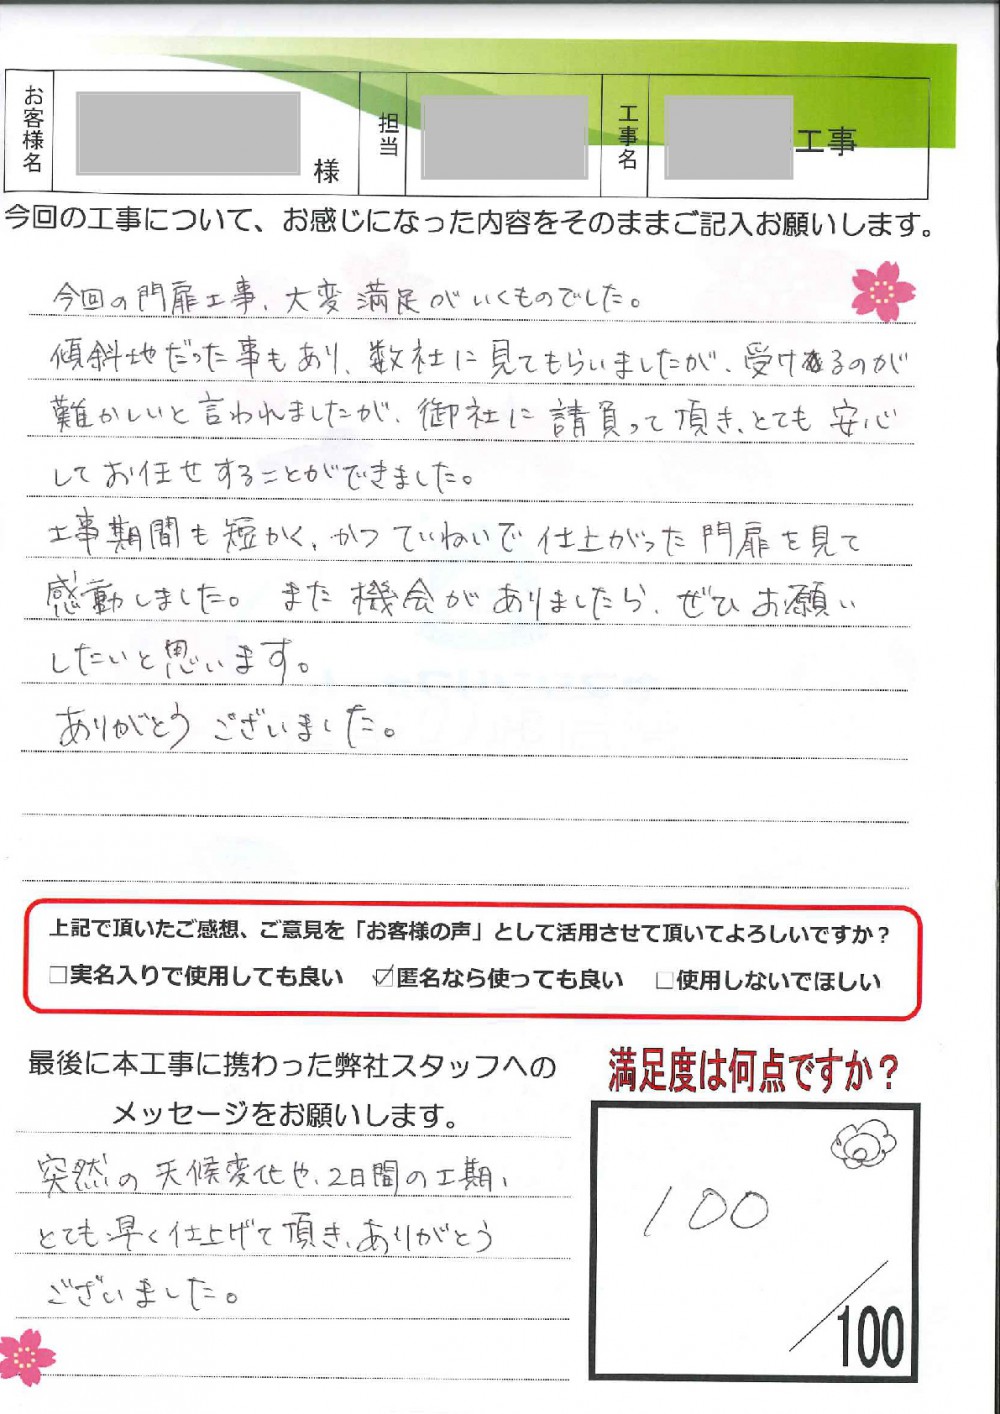 お客様名
様
担当
工事名
工事
今回の工事について、お感じになった内容をそのままご記入お願いします。
今回の門扉工事、大変満足がいくものでした。
傾斜地だった事もあり、数社に見てもらいましたが、受けるのが
難かしいと言われましたが、御社に請負って頂き、とても安心
してお任せすることができました。
工事期間も短かく、かつていねいで仕上がった門扉を見て
感動しました。また機会がありましたら、ぜひお願い
したいと思います。
ありがとうございました。
上記で頂いたご感想、ご意見を「お客様の声」として活用させて頂いてよろしいですか？
□実名入りで使用しても良い ☑匿名なら使っても良い □使用しないでほしい
最後に本工事に携わった弊社スタッフへの
メッセージをお願いします。
突然の天候変化や、2日間の工期、
とても早く仕上げて頂き、ありがとう
ございました。
満足度は何点ですか？
100
/100